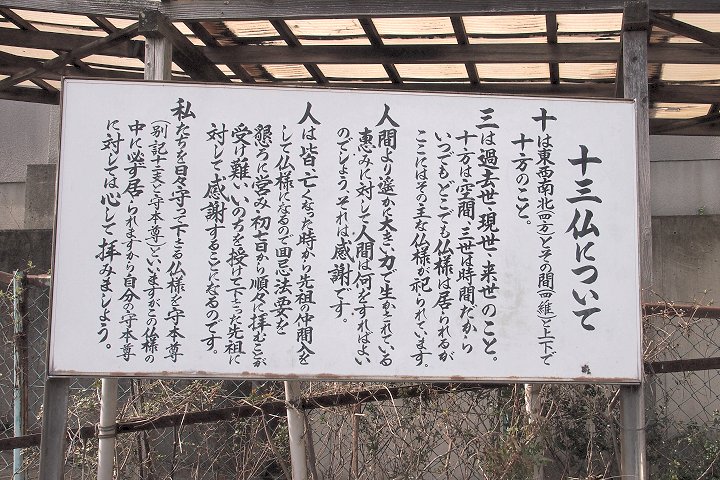 十三仏について
十は東西南北(四方)とその間(四維)と上下で
十方のこと。
三は過去世・現世・来世のこと。
十方は空間、三世は時間だから
いつでもどこでも仏様は居られるが
ここにはその主な仏様が祀られています。
人間より遥かに大きい力で生かされている
恵みに対して人間は何をすればよい
のでしょう、それは感謝です。
人は皆、亡くなった時から先祖の仲間入を
して仏様になるので回忌法要を
懇ろに営み・初七日から順々に拝むことが
受け難いいのちを授けて下さった先祖に
対して感謝することになるのです。
私たちを日々守って下さる仏様を守本尊
(別記十二支と守本尊)といいますがこの仏様の
中に必ず居られますから自分の守本尊
に対しては心して拝みましょう。